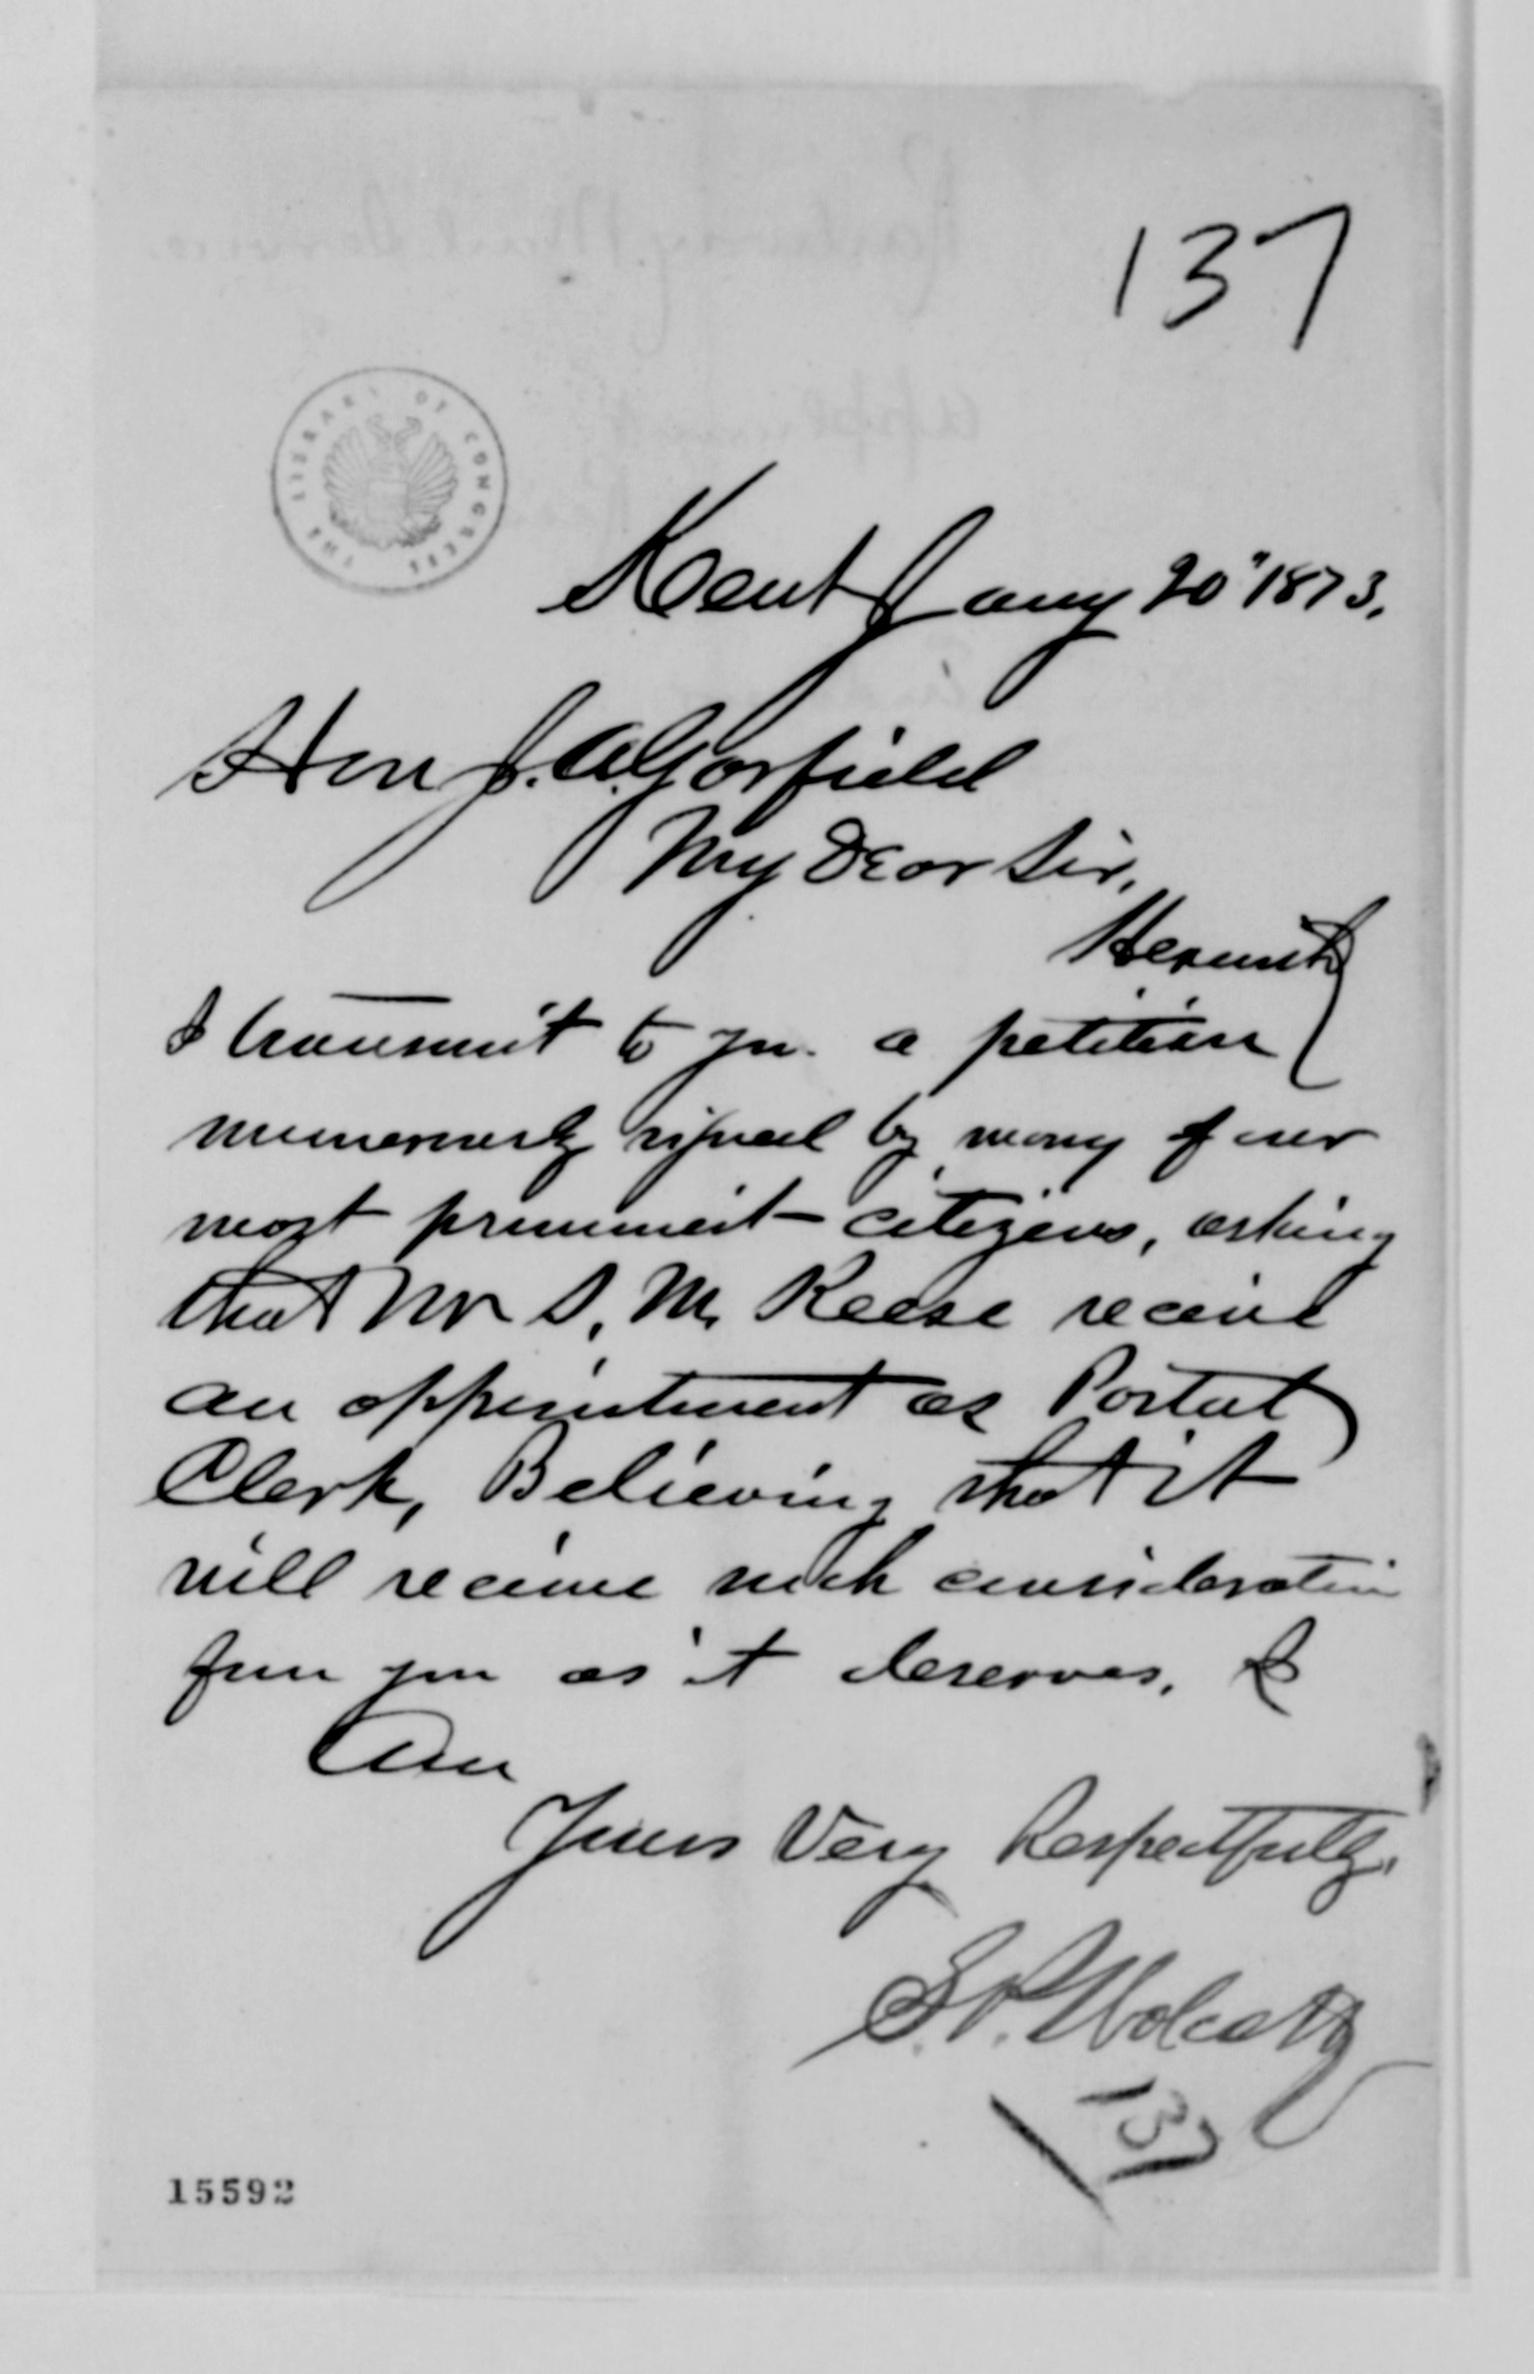 137
THE LIBRARY OF CONGRESS
Kent Jany 20" 1873.
Hon J. A. Garfield
My Dear Sir,
Herewith
I transmit to you a petition
numerously signed by many of our
most prominent citizens, asking
that Mr S. M. Reese receive
an appointment as Postal
Clerk, Believing that it
will receive such consideration
from you as it deserves, I
Am
Yours Very Respectfully,
S. P. Wolcott
137
15592